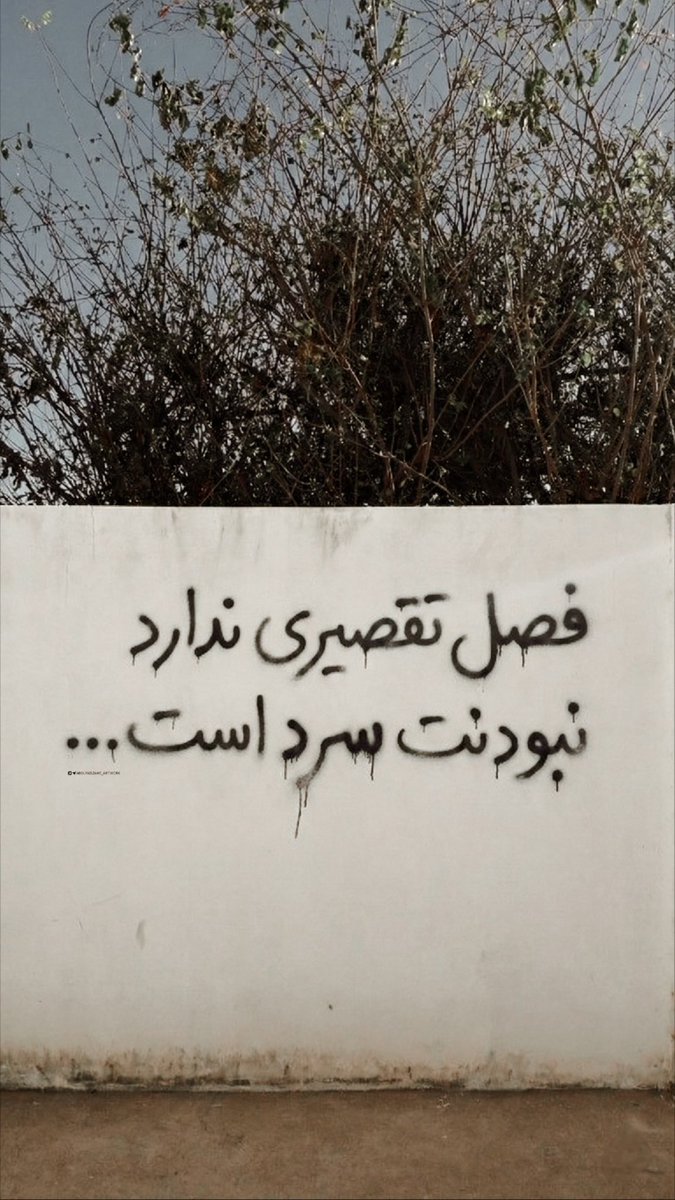 فصل تقصیری ندارد
نبودنت سرد است...